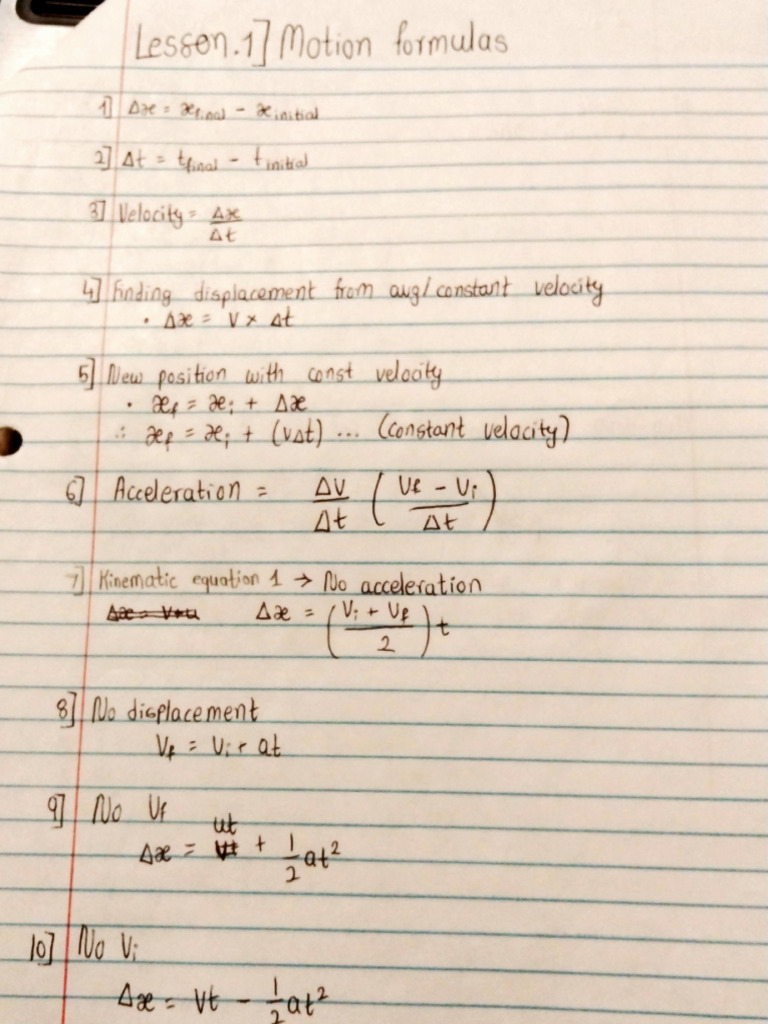 Lesson.1] Motion formulas
1] Δx = x_final - x_initial
2] Δt = t_final - t_initial
3] Velocity = Δx/Δt
4] Finding displacement from avg/constant velocity
• Δx = V × Δt
5] New position with const velocity
• x_f = x_i + Δx
∴ x_f = x_i + (vΔt) ... (constant velocity)
6] Acceleration = ΔV/Δt ((V_f - V_i)/Δt)
7] Kinematic equation 1 → No acceleration
Δx = ((V_i + V_f)/2) t
8] No displacement
V_f = V_i + at
9] No V_f
Δx = ut + 1/2 at²
10] No V_i
Δx = Vt - 1/2 at²